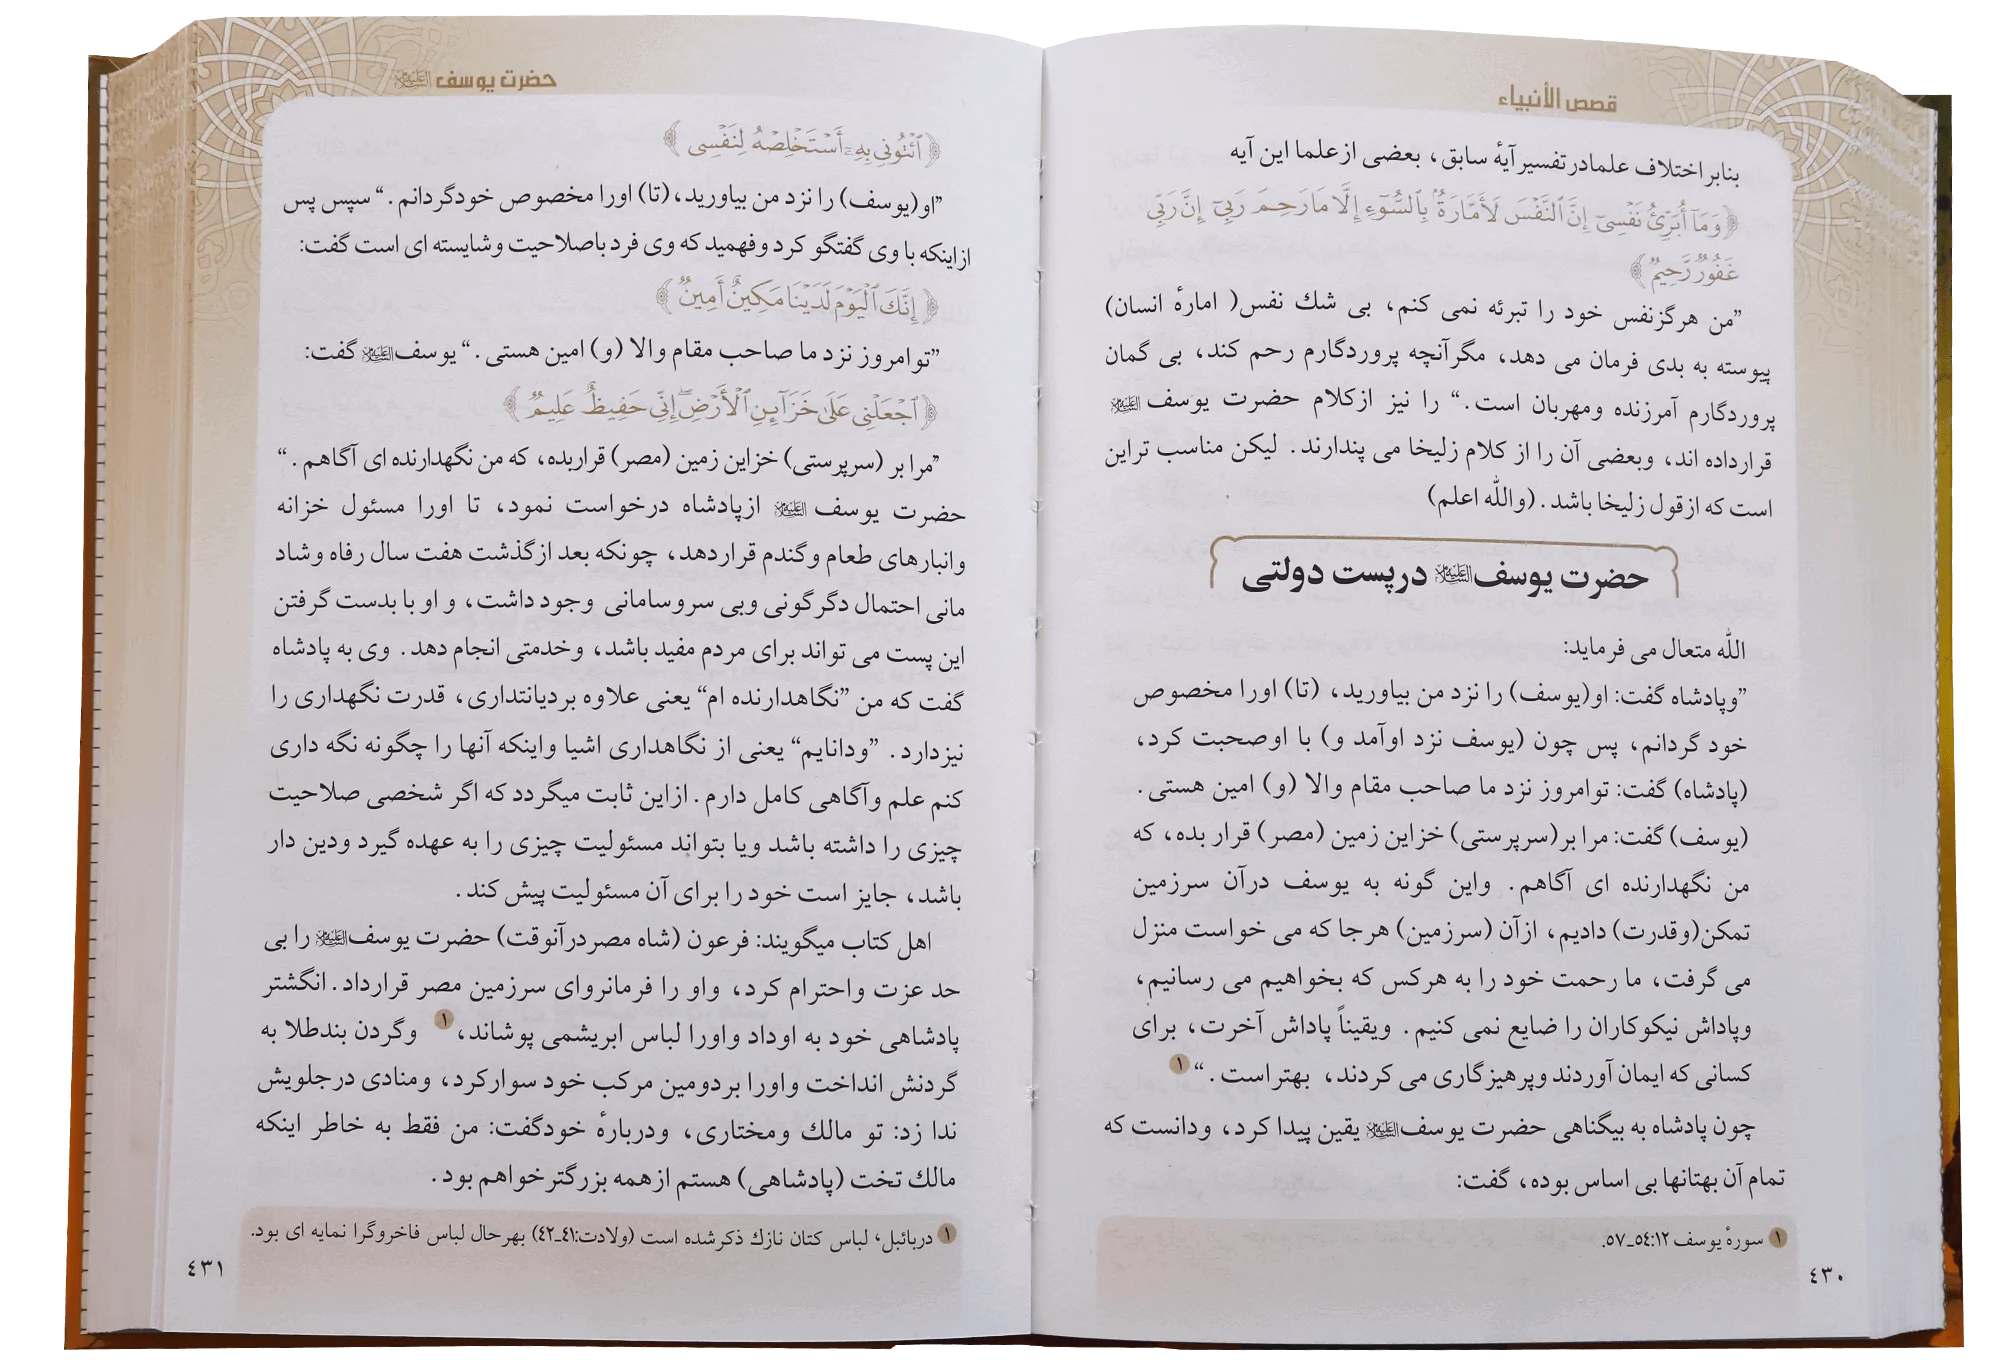 قصص الأنبياء
بنابر اختلاف علما در تفسیر آیهٔ سابق، بعضی از علما این آیه
﴿وَمَآ أُبَرِّئُ نَفْسِىٓ إِنَّ ٱلنَّفْسَ لَأَمَّارَةُۢ بِٱلسُّوٓءِ إِلَّا مَا رَحِمَ رَبِّىٓ إِنَّ رَبِّى
غَفُورٌ رَّحِيمٌ﴾
”من هرگز نفس خود را تبرئه نمی کنم، بی شك نفس( امارهٔ انسان)
پیوسته به بدی فرمان می دهد، مگر آنچه پروردگارم رحم کند، بی گمان
پروردگارم آمرزنده ومهربان است.“ را نیز از کلام حضرت یوسف علیه السلام
قرارداده اند، وبعضی آن را از کلام زلیخا می پندارند. لیکن مناسب تر این
است که از قول زلیخا باشد. (والله اعلم)
حضرت یوسف علیه السلام در پست دولتی
الله متعال می فرماید:
”وپادشاه گفت: او(یوسف) را نزد من بیاورید، (تا) اورا مخصوص
خود گردانم، پس چون (یوسف نزد اوآمد و) با اوصحبت کرد،
(پادشاه) گفت: توامروز نزد ما صاحب مقام والا (و) امین هستی.
(یوسف) گفت: مرا بر(سرپرستی) خزاین زمین (مصر) قرار بده، که
من نگهدارنده ای آگاهم. واین گونه به یوسف درآن سرزمین
تمکن(وقدرت) دادیم، ازآن (سرزمین) هرجا که می خواست منزل
می گرفت، ما رحمت خود را به هرکس که بخواهیم می رسانیم،
وپاداش نیکوکاران را ضایع نمی کنیم. ویقیناً پاداش آخرت، برای
کسانی که ایمان آوردند وپرهیزگاری می کردند، بهتراست.“ ١
چون پادشاه به بیگناهی حضرت یوسف علیه السلام یقین پیدا کرد، ودانست که
تمام آن بهتانها بی اساس بوده، گفت:
١ سورهٔ یوسف ١٢:٥٤_٥٧.
٤٣٠
حضرت یوسف علیه السلام
﴿ٱئْتُونِى بِهِۦٓ أَسْتَخْلِصْهُ لِنَفْسِى﴾
”او(یوسف) را نزد من بیاورید، (تا) اورا مخصوص خودگردانم.“ سپس پس
ازاینکه با وی گفتگو کرد وفهمید که وی فرد باصلاحیت وشایسته ای است گفت:
﴿إِنَّكَ ٱلْيَوْمَ لَدَيْنَا مَكِينٌ أَمِينٌ﴾
”توامروز نزد ما صاحب مقام والا (و) امین هستی.“ یوسف علیه السلام گفت:
﴿ٱجْعَلْنِى عَلَىٰ خَزَآئِنِ ٱلْأَرْضِ ۖ إِنِّى حَفِيظٌ عَلِيمٌ﴾
”مرا بر (سرپرستی) خزاین زمین (مصر) قراربده، که من نگهدارنده ای آگاهم.“
حضرت یوسف علیه السلام ازپادشاه درخواست نمود، تا اورا مسئول خزانه
وانبارهای طعام وگندم قراردهد، چونکه بعد ازگذشت هفت سال رفاه وشاد
مانی احتمال دگرگونی وبی سروسامانی وجود داشت، و او با بدست گرفتن
این پست می تواند برای مردم مفید باشد، وخدمتی انجام دهد. وی به پادشاه
گفت که من ”نگاهدارنده ام“ یعنی علاوه بردیانتداری، قدرت نگهداری را
نیزدارد. ”ودانایم“ یعنی از نگاهداری اشیا واینکه آنها را چگونه نگه داری
کنم علم وآگاهی کامل دارم. ازاین ثابت میگردد که اگر شخصی صلاحیت
چیزی را داشته باشد ویا بتواند مسئولیت چیزی را به عهده گیرد ودین دار
باشد، جایز است خود را برای آن مسئولیت پیش کند.
اهل کتاب میگویند: فرعون (شاه مصردرآنوقت) حضرت یوسف علیه السلام را بی
حد عزت واحترام کرد، واو را فرمانروای سرزمین مصر قرارداد. انگشتر
پادشاهی خود به اوداد واورا لباس ابریشمی پوشاند، ١ وگردن بندطلا به
گردنش انداخت واورا بردومین مرکب خود سوارکرد، ومنادی درجلویش
ندا زد: تو مالك ومختاری، ودربارهٔ خودگفت: من فقط به خاطر اینکه
مالك تخت (پادشاهی) هستم ازهمه بزرگترخواهم بود.
١ دربائبل، لباس کتان نازك ذکرشده است (ولادت:٤١_٤٢) بهرحال لباس فاخروگرا نمایه ای بود.
٤٣١